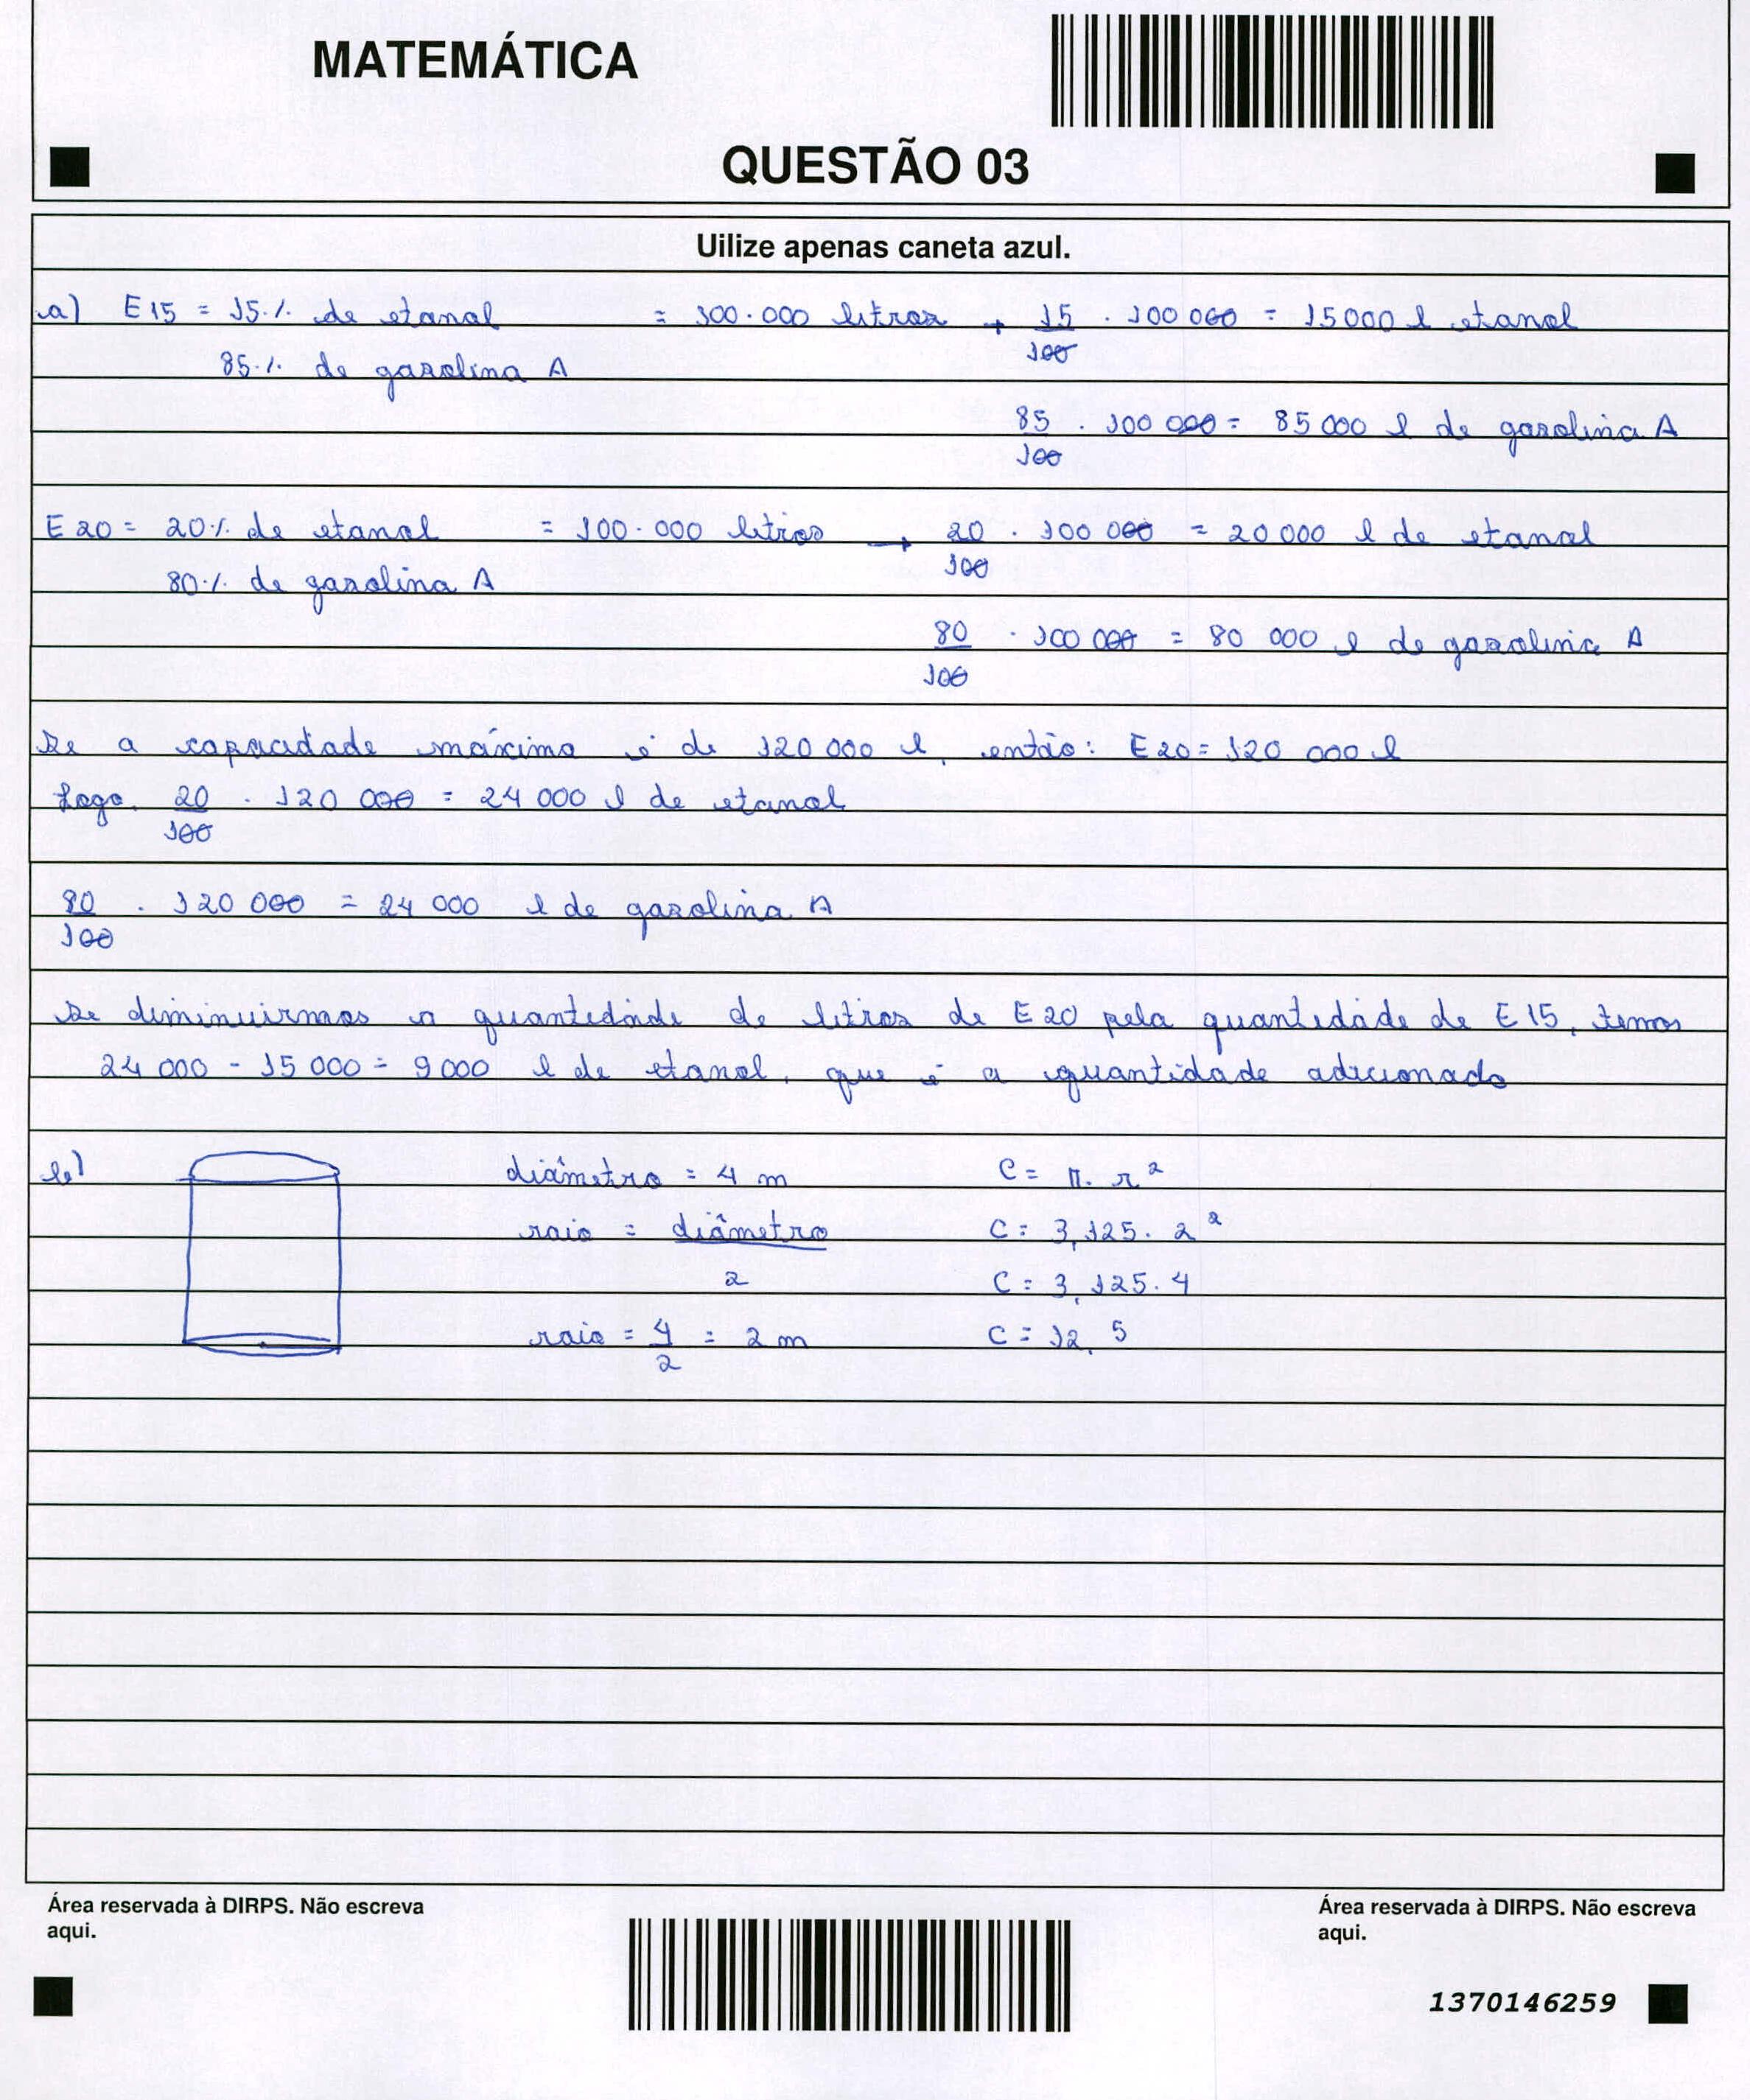 MATEMÁTICA
QUESTÃO 03
Uilize apenas caneta azul.
a) E15 = 15% de etanol = 100.000 litros → 15/100 . 100 000 = 15000 l etanol
85% de gasolina A
85/100 . 100 000 = 85 000 l de gasolina A
E20 = 20% de etanol = 100.000 litros → 20/100 . 100 000 = 20 000 l de etanol
80% de gasolina A
80/100 . 100 000 = 80 000 l de gasolina A
Se a capacidade máxima é de 120 000 l, então: E20 = 120 000 l
Logo, 20/100 . 120 000 = 24 000 l de etanol
80/100 . 120 000 = 24 000 l de gasolina A
Se diminuirmos a quantidade de litros de E20 pela quantidade de E15, temos
24 000 - 15 000 = 9 000 l de etanol, que é a quantidade adicionado
b) diâmetro = 4 m C = π. r²
raio = diâmetro/2 C = 3,125. 2²
C = 3,125. 4
raio = 4/2 = 2 m C = 12,5
Área reservada à DIRPS. Não escreva
aqui.
Área reservada à DIRPS. Não escreva
aqui.
1370146259